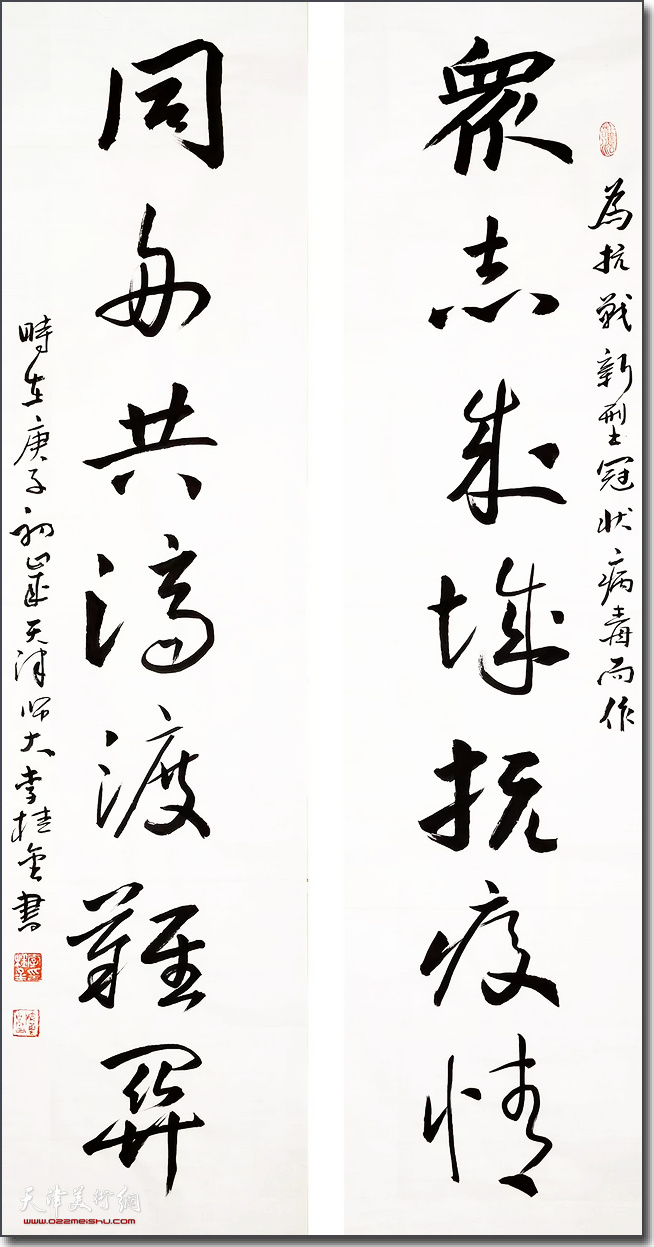 為抗戰新型冠狀病毒而作
眾志成城抗疫情
同舟共濟渡難關
時在庚子初歲天津師大李桂金書
天津美術網
www.022meishu.com